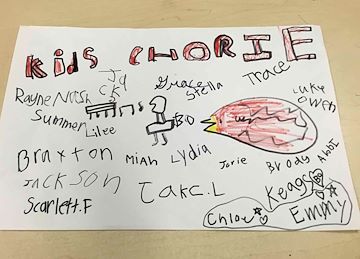 KIDS CHORIE
Jack
Grace
Stella
Trace
Rayne Nash
Luke
Owen
Summer
Lilee
BO
Braxton
Miah
Lydia
Jorie
Abbi
JACKSON
Jake.L
Keags
Scarlett.F
Chloe
Emmy